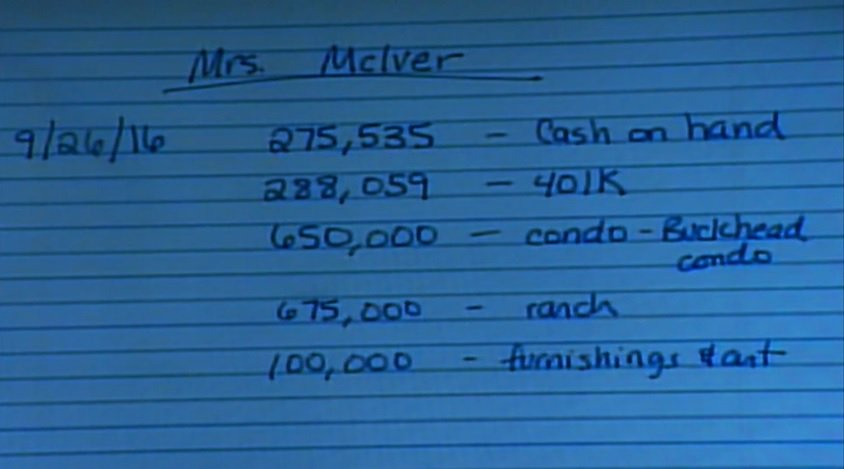 Mrs. McIver
9/26/16 275,535 - Cash on hand
288,059 - 401K
650,000 - condo - Buckhead
condo
675,000 - ranch
100,000 - furnishings & art